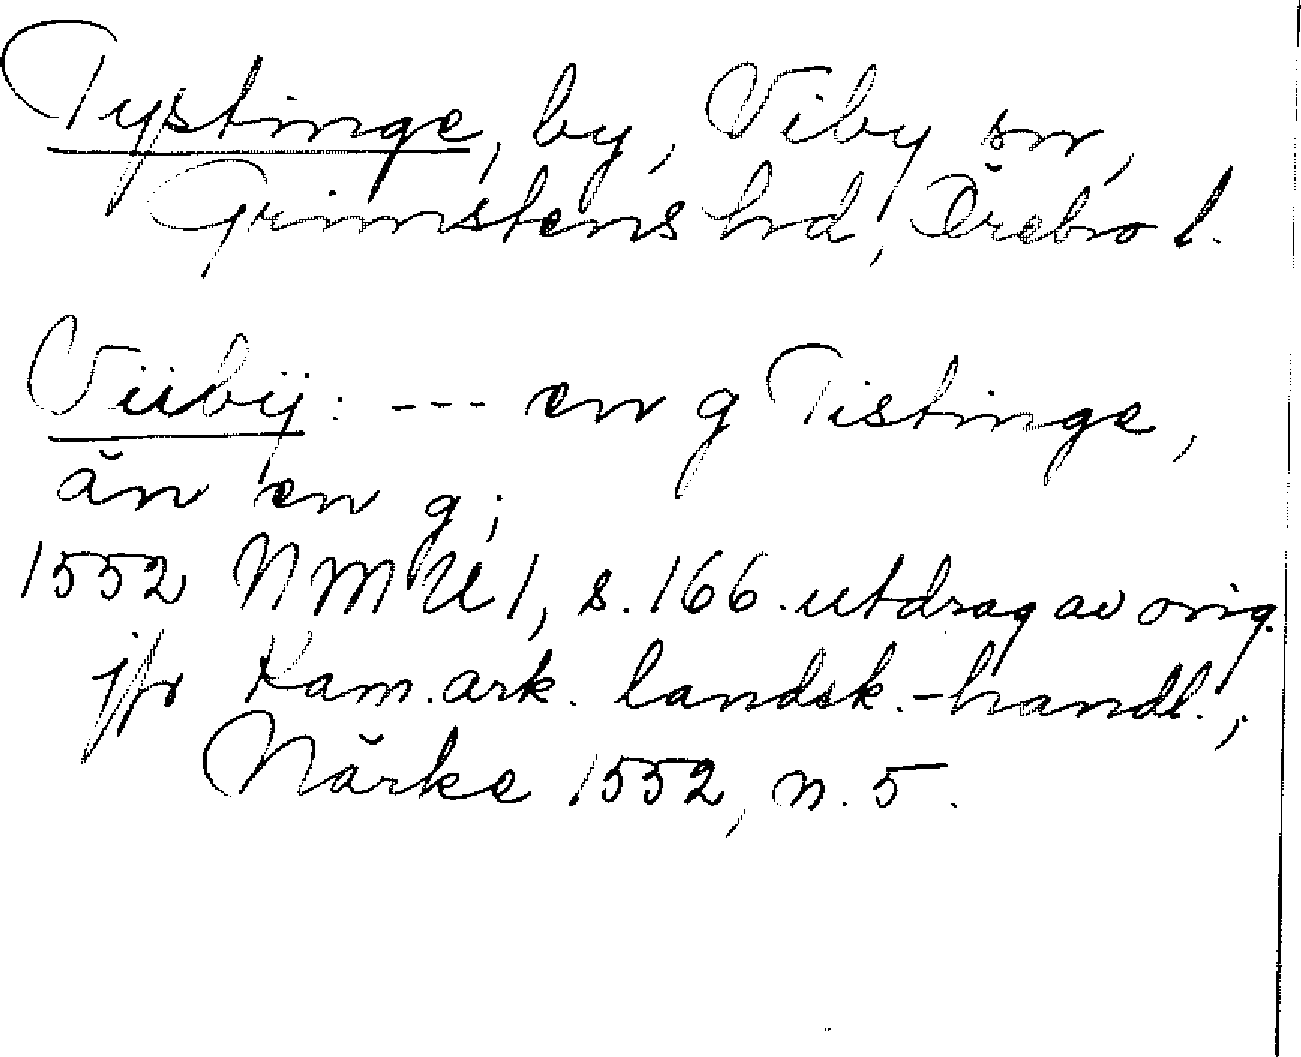 Tystinge, by, Viby sn,
Grimstens hd, Örebro l.
Viibÿ: --- en g Tistinge,
än en g;
1552 NMU 1, s. 166. utdrag av orig.
jfr Kam. ark. landsk.-handl.;
Närke 1552, n. 5.